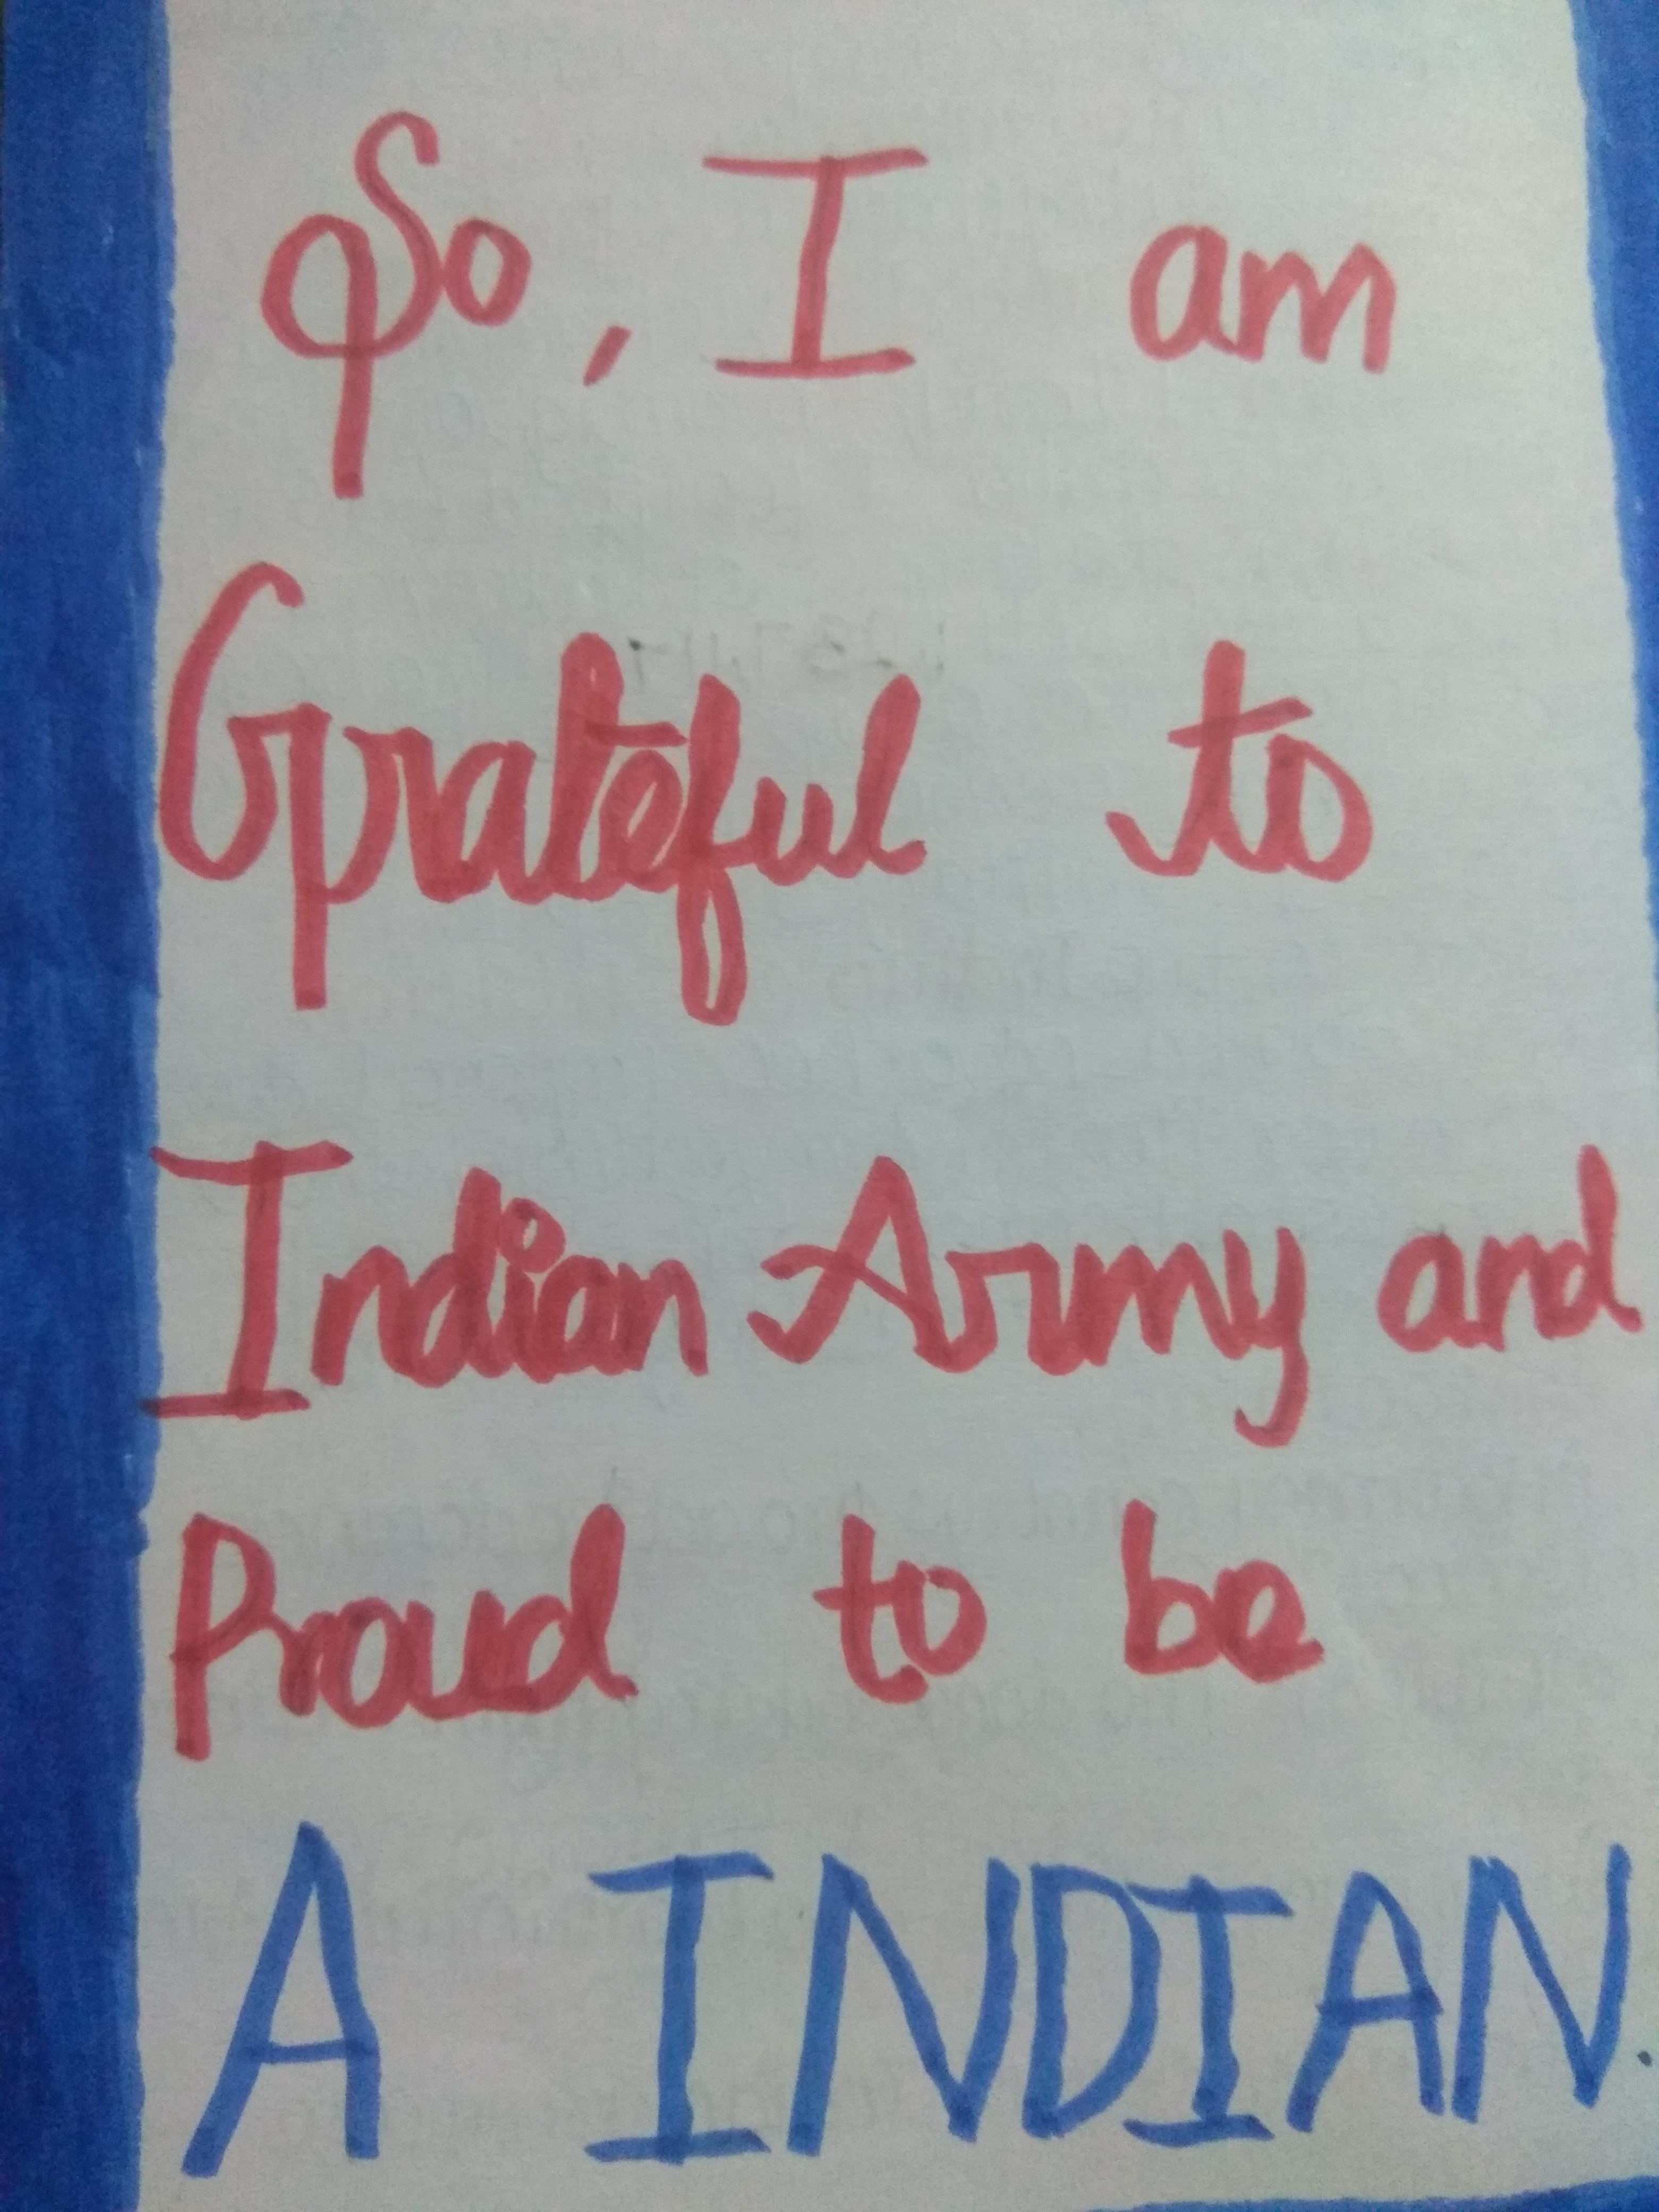 So, I am
Grateful to
Indian Army and
Proud to be
A INDIAN.